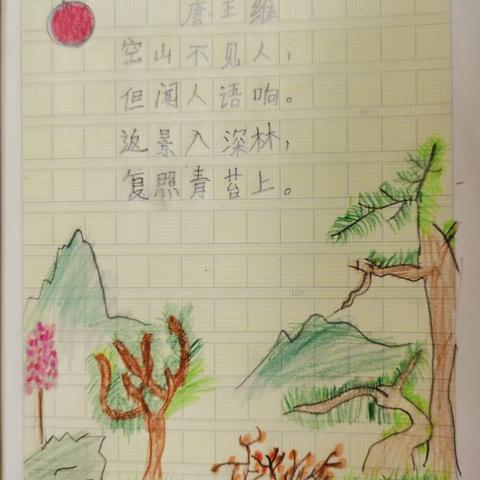 唐王维
空山不见人，
但闻人语响。
返景入深林，
复照青苔上。
100